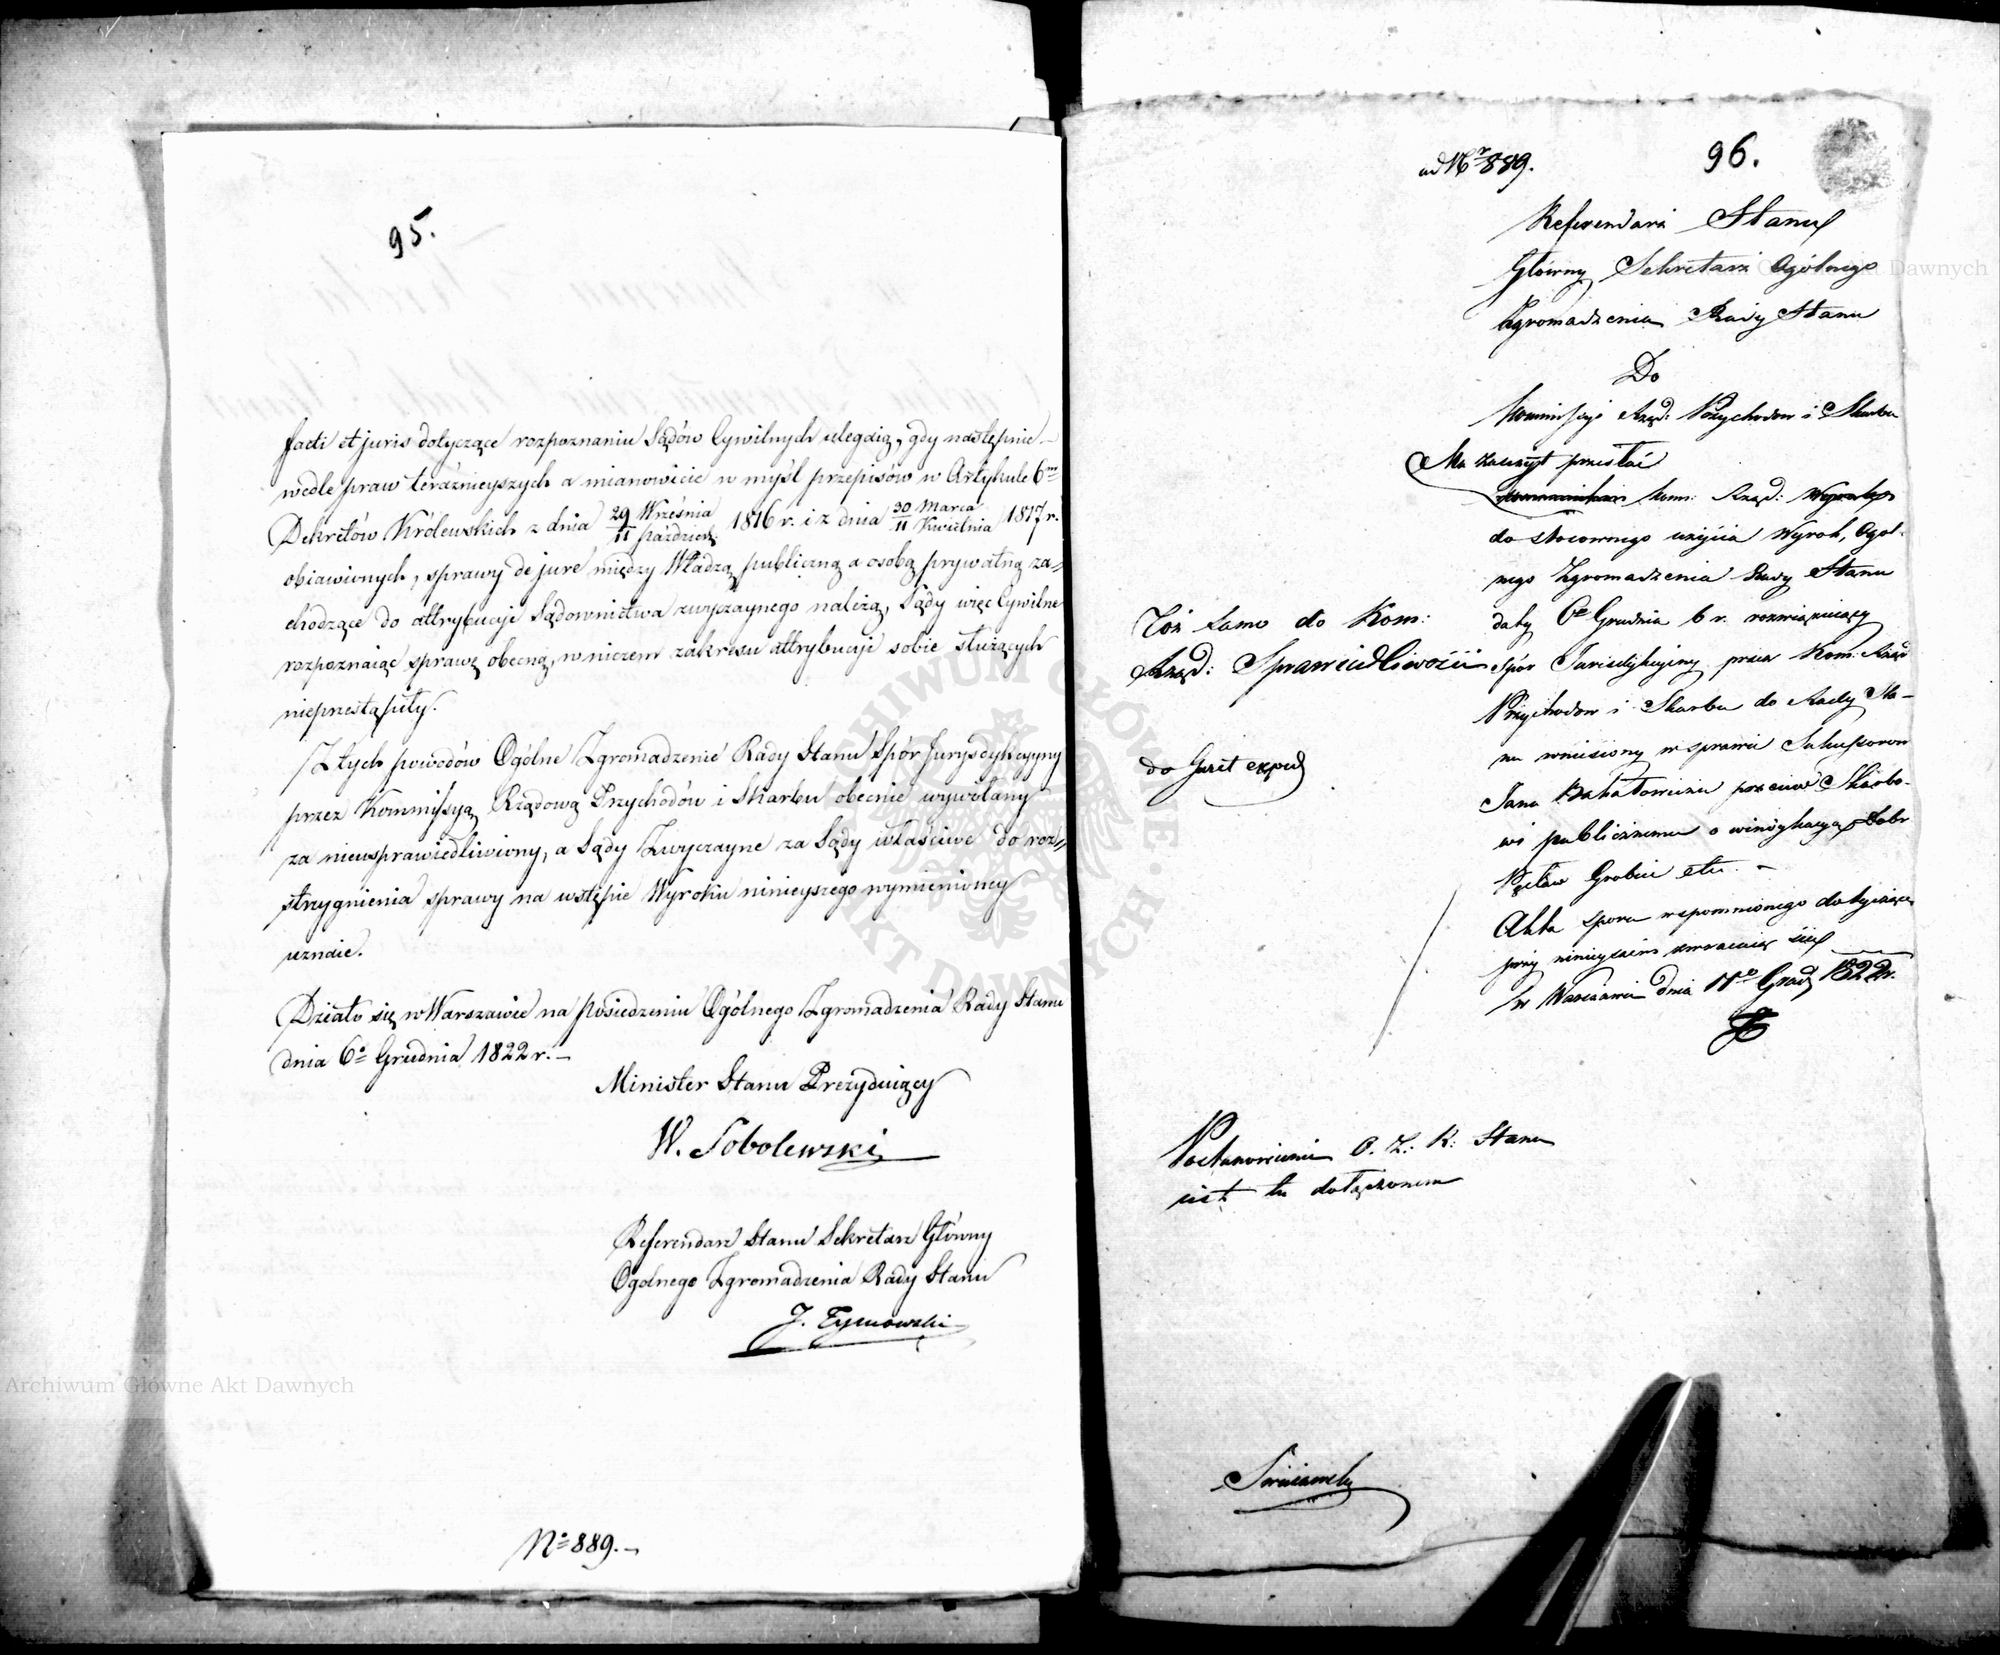 95.
facti et juris dotyczące rozpoznaniu Sądów Cywilnych ulegaią, gdy następnie
wedle praw teraźnieyszych a mianowicie w myśl przepisów w Artykule 6m
Dekretów Królewskich z dnia 29 Września / 11 Październ. 1816 r. i z dnia 30 Marca / 11 Kwietnia 1817 r.
obiawionych, sprawy de jure między Władzą publiczną a osobą prywatną za-
chodzące do attrybucyi Sądownictwa zwyczaynego należą, Sądy więc Cywilne
rozpoznaiąc sprawę obecną, w niczem zakresu attrybucyi sobie służących
nieprzestąpiły.
Z tych powodów Ogólne Zgromadzenie Rady Stanu Spór Jurysdykcyyny
przez Kommissyą Rządową Przychodów i Skarbu obecnie wywołany
za nieusprawiedliwiony, a Sądy Zwyczayne za Sądy właściwe do roz-
strzygnienia sprawy na wstępie Wyroku ninieyszego wymienioney
uznaie.
Działo się w Warszawie na posiedzeniu Ogólnego Zgromadzenia Rady Stanu
dnia 6o Grudnia 1822 r. –
Minister Stanu Prezyduiący
W. Sobolewski
Referendarz Stanu Sekretarz Główny
Ogolnego Zgromadzenia Rady Stanu
J. Tymowski
No 889. –
ad Nr 889.
96.
Referendarz Stanu
Główny Sekretarz Ogólnego
Zgromadzenia Rady Stanu
Do
Kommissyi Rząd: Przychodow i Skarbu
Ma zaszczyt przesłać
Kom: Rząd:
do stosownego użycia Wyrok, Ogol-
nego Zgromadzenia Rady Stanu
daty 6o Grudnia b r. rozwiązuiący
spór Jurisdykcyiny przez Kom: Rząd
Przychodow i Skarbu do Rady Sta-
nu wniesiony w sprawie Sukcessorow
Jana przeciwko Skarbo-
wi publicznemu o windykacyą Dobr
Grobia etc. –
Akta sporu wspomnionego dotyczące
przy ninieyszem zwracaią się
w Warszawie dnia 11o Grud 1822 r.
Toż samo do Kom:
Rząd: Sprawiedliwości
do Gazet exped
Postanowienie O. Z. R. Stanu
iest tu dołączonem
Archiwum Główne Akt Dawnych
ARCHIWUM GŁÓWNE AKT DAWNYCH